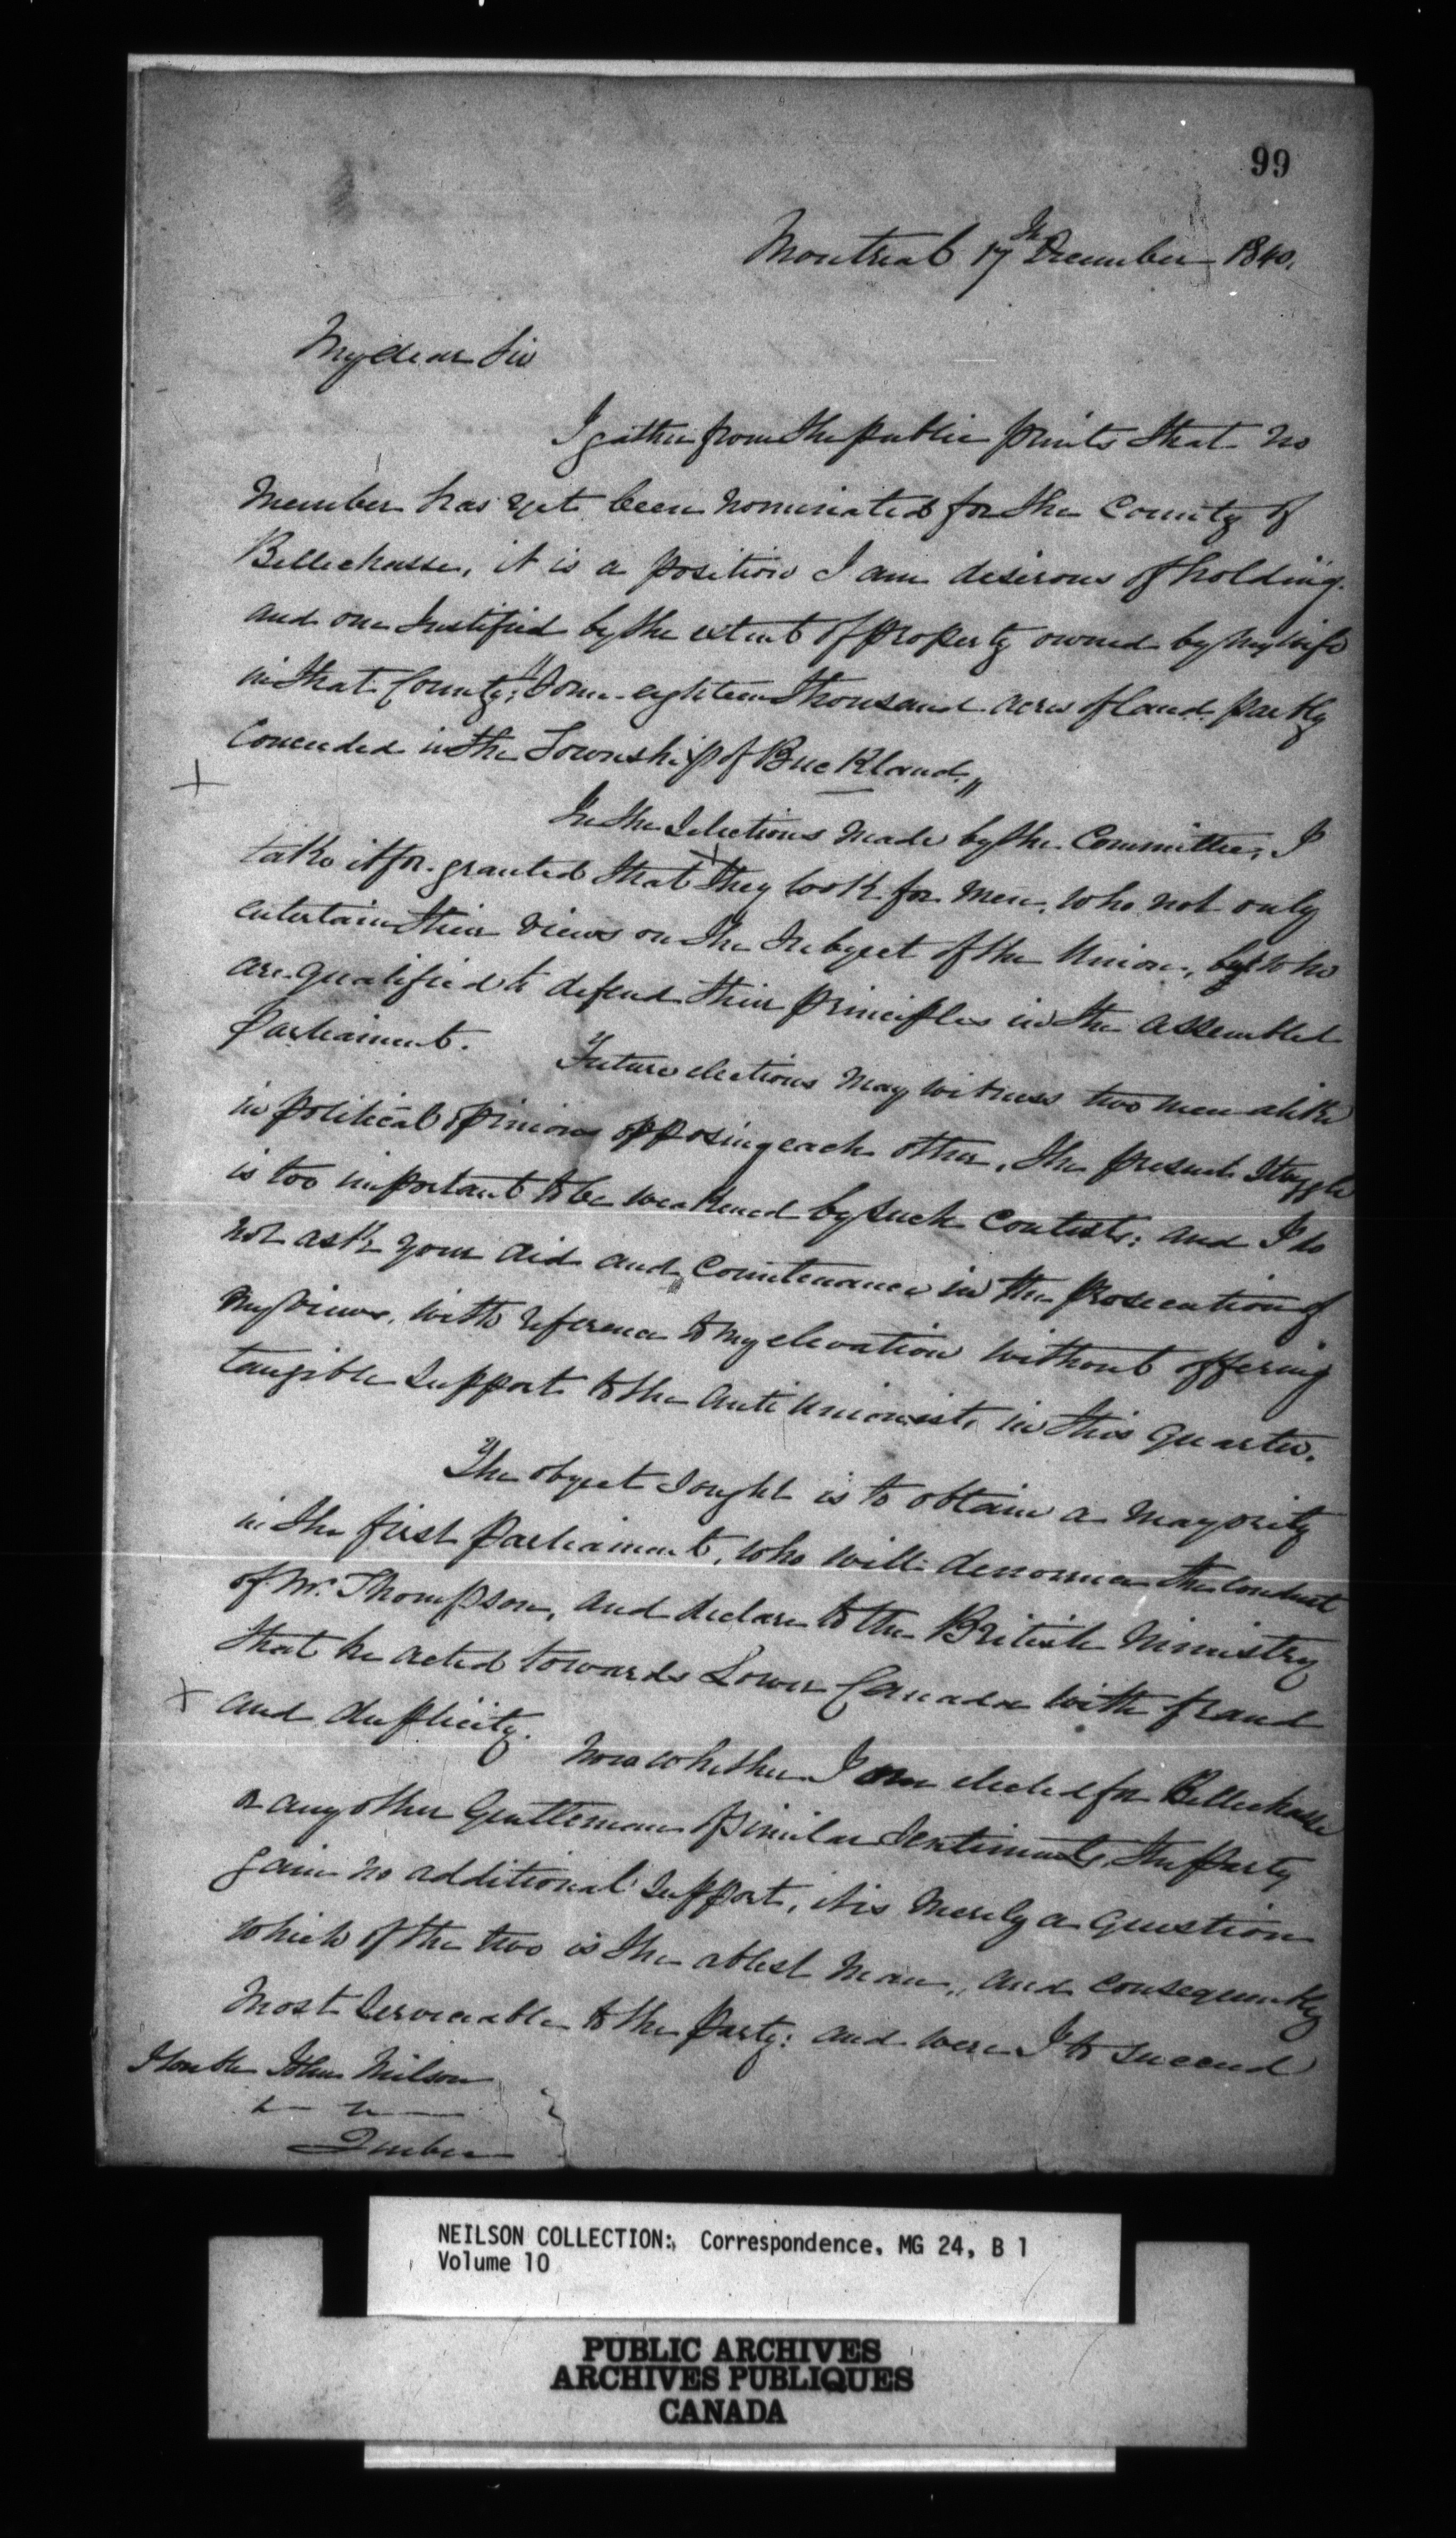 99
Montreal 17th December 1840.
My dear Sir
I gather from the public prints that no
Member has yet been nominated for the County of
Bellechasse, it is a position I am desirous of holding.
and one Justified by the extent of property owned by my wife
in that County; "Some eighteen thousand acres of land partly
Conceeded in the Township of Buckland."
In the Selections made by the Committee, I
take it for granted that they look for men, who not only
entertain their views on the Subject of the Union, but who
are qualified to defend their principles in the assembled
Parliament.
Future elections may witness two men alike
in political opinions opposing each other, the present Struggle
is too important to be weakened by such Contests; and I do
not ask your aid and Countenance in the prosecution of
my views, with reference to my elevation without offering
tangible Support to the Anti Unionists in this quarter.
The object Sought is to obtain a Majority
in the first Parliament, who will denounce the Conduct
of Mr. Thompson, and declare to the British Ministry
that he acted towards Lower Canada with fraud
and duplicity.
Now whether I am elected for Bellechasse
or any other Gentleman of similar Sentiments, the party
gain no additional Support, it is Merely a question
which of the two is the ablest Man, and consequently
Most Serviceable to the Party: and were I to succeed
Honble John Neilson
Quebec
NEILSON COLLECTION: Correspondence, MG 24, B 1
Volume 10
PUBLIC ARCHIVES
ARCHIVES PUBLIQUES
CANADA